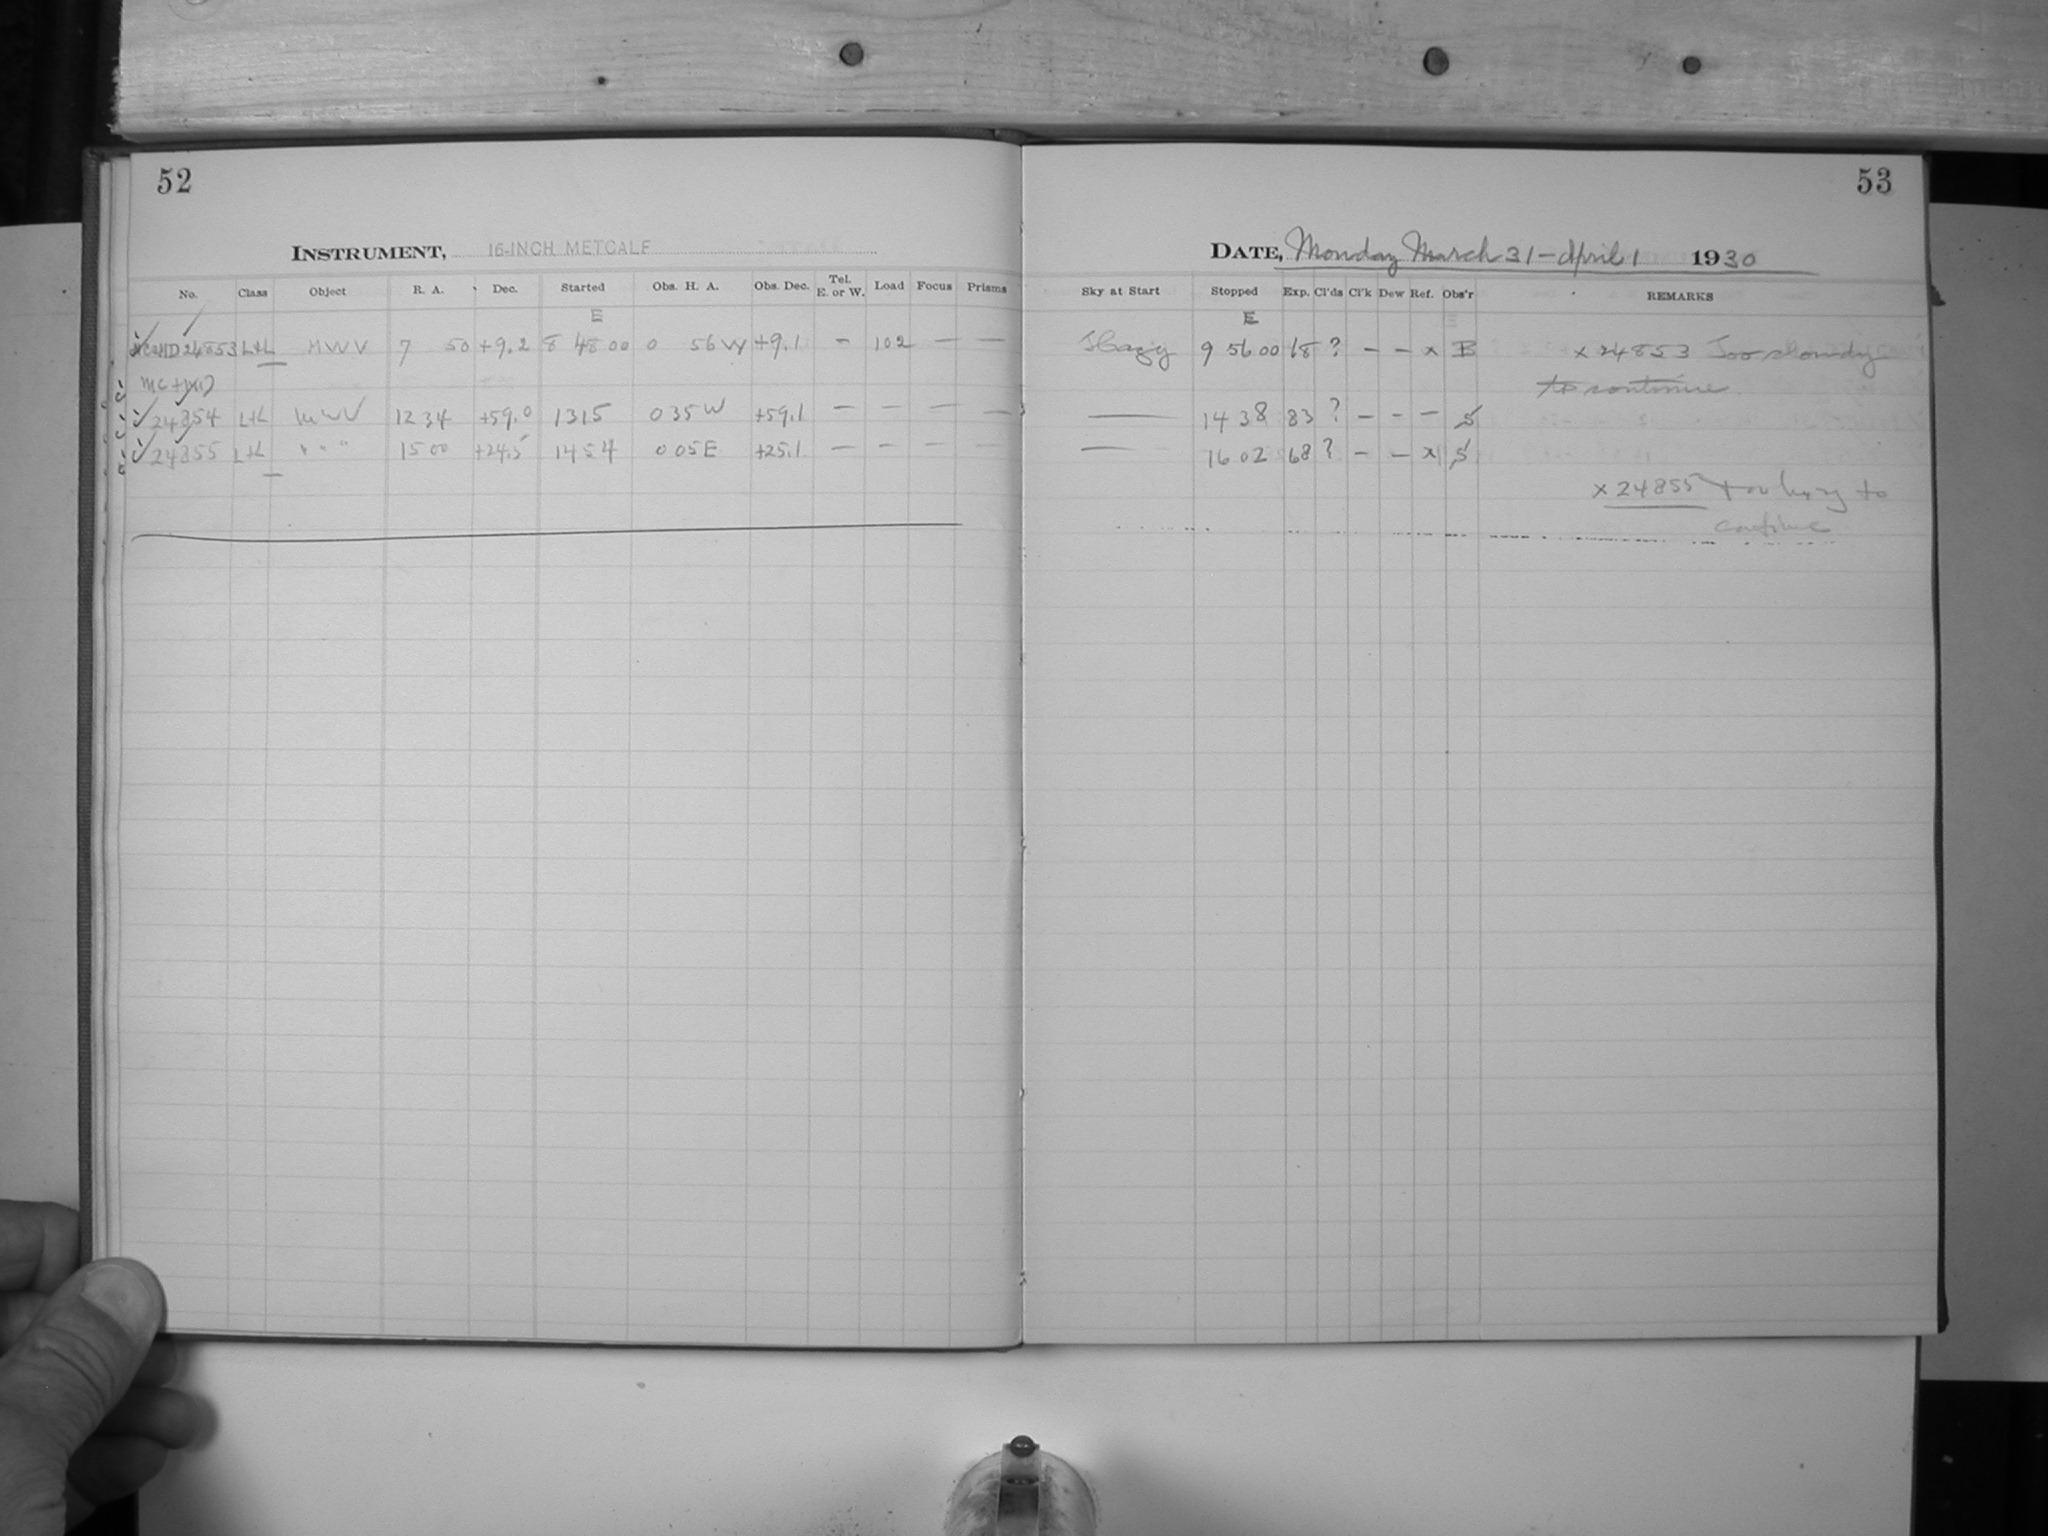 52
INSTRUMENT, 16-INCH METCALF
No. Class Object R. A. Dec. Started Obs. H. A. Obs. Dec. Tel. E. or W. Load Focus Prisms
E
24853 L+L MWV 7 50 +9.2 8 48 00 0 56 W +9.1 – 102 — —
MC +
24854 L+L MWV 12 34 +59.0 13 15 0 35 W +59.1 — — — —
24855 L+L " " " 15 00 +24.5 14 54 0 05 E +25.1 — – — —
53
DATE, Monday March 31 – April 1 1930
Sky at Start Stopped Exp. Cl'ds Cl'k Dew Ref. Obs'r REMARKS
E
Hazy 9 56 00 68 ? – – x B x 24853 Too cloudy
to continue
—— 14 38 83 ? – – – S
—— 16 02 68 ? – – x S
x 24855 too hazy to
continue